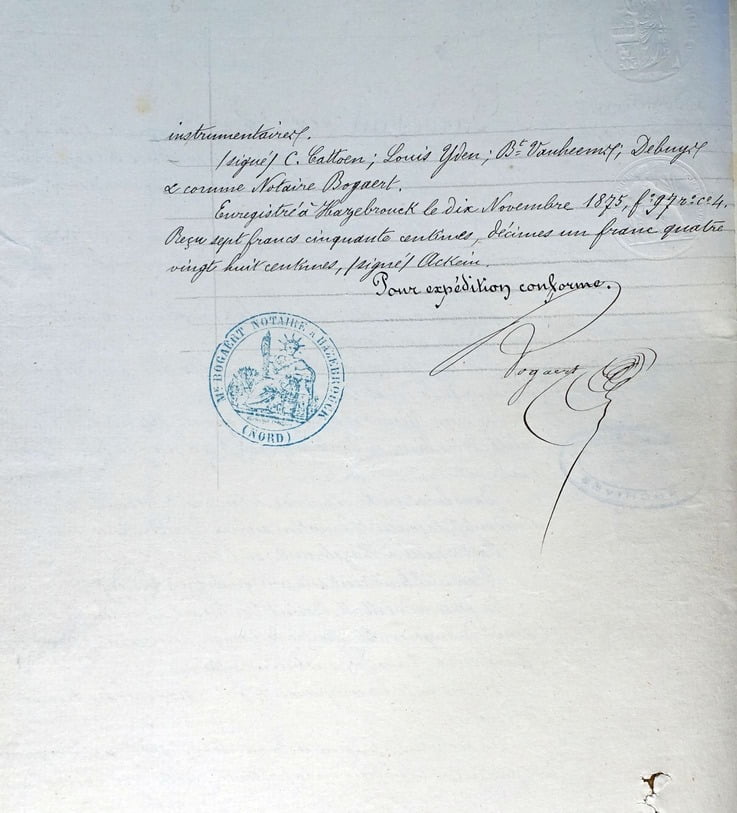 instrumentaires.
(signé) C. Cattoen; Louis Yden; Bt Vanheems; Debuys
& comme Notaire Bogaert.
Enregistré à Hazebrouck le dix Novembre 1875, fo 97 ro ce 4.
Reçu sept francs cinquante centimes, décimes un franc quatre
vingt huit centimes, (signé) Ackein.
Pour expédition conforme.
Bogaert
Me BOGAERT NOTAIRE A HAZEBROUCK
(NORD)